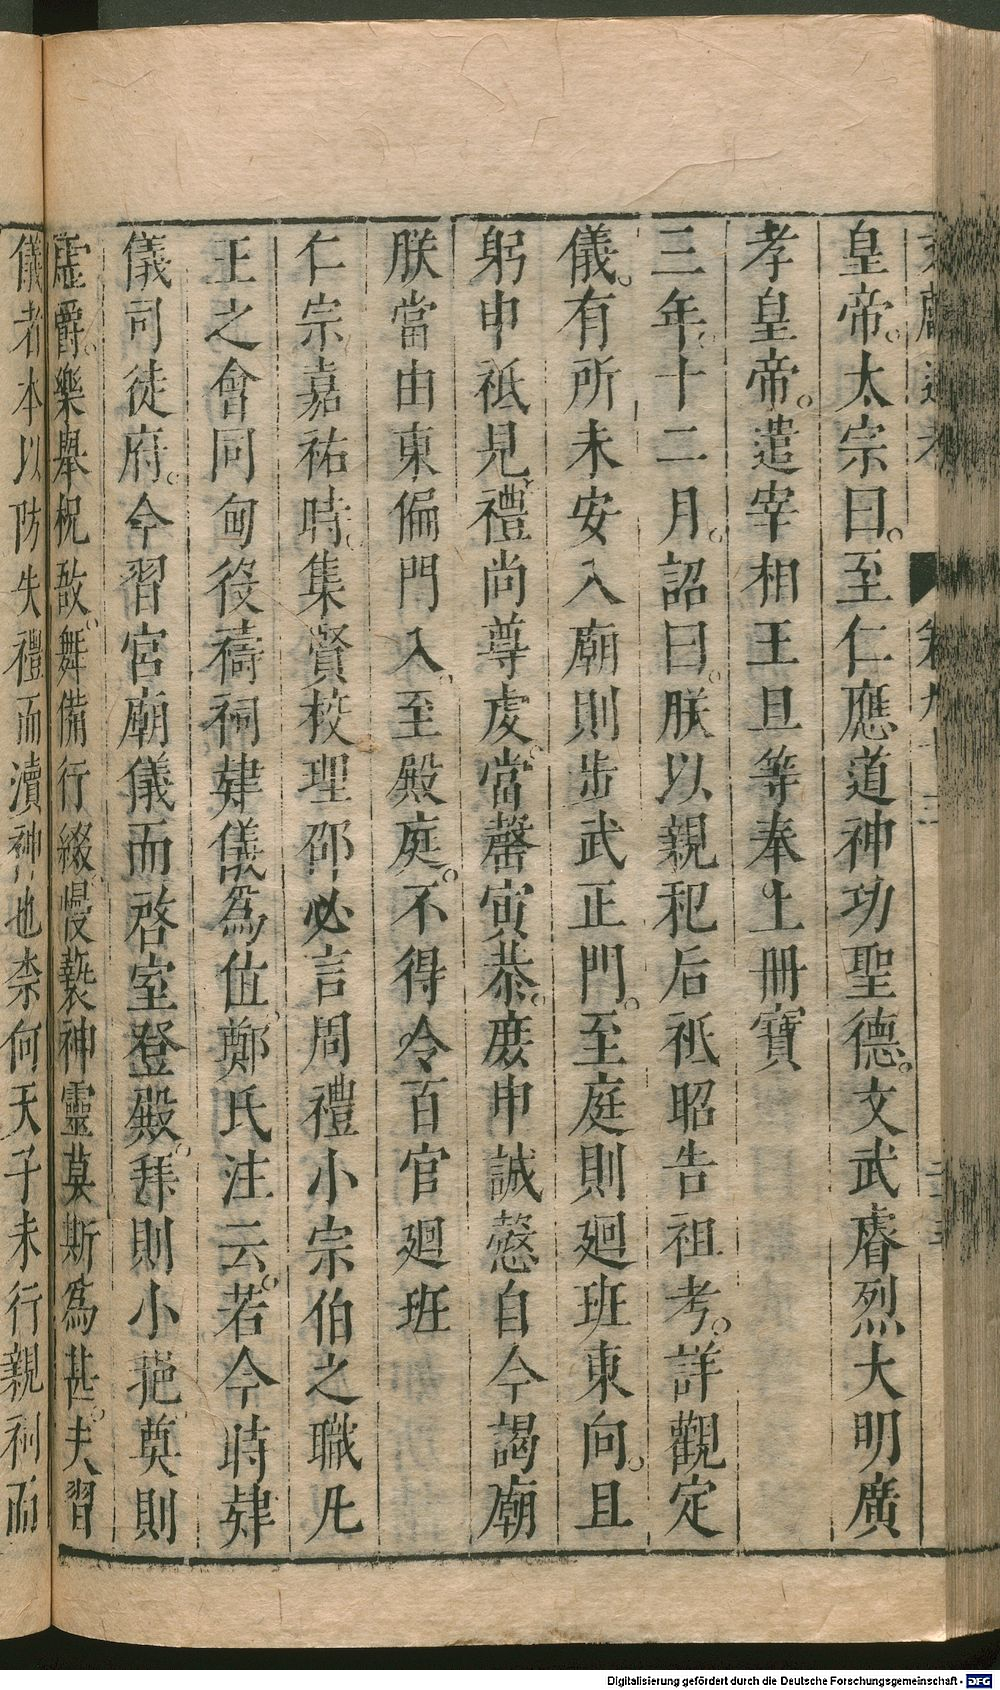 文獻通考 卷九十三
皇帝。太宗曰。至仁應道神功聖德。文武睿烈大明廣
孝皇帝。遣宰相王旦等奉上冊寶
三年。十二月。詔曰。朕以親祀后祇昭告祖考。詳觀定
儀。有所未安入廟則步武正門。至庭則廻班東向。且
躬申祗見。禮尚尊虔。當罄寅恭。庶申誠慤自今謁廟
朕當由東偏門入。至殿庭。不得令百官廻班
仁宗嘉祐時。集賢校理邵必言周禮小宗伯之職凡
王之會同甸役禱祠肄儀為位。鄭氏注云。若今時肄
儀司徒府。今習宮廟儀而啓室登殿。拜則小挹奠則
虛爵。樂舉柷敔。舞備行綴。慢褻神靈莫斯為甚。夫習
儀者本以防失禮而瀆神也柰何天子未行親祠而
Digitalisierung gefördert durch die Deutsche Forschungsgemeinschaft - DFG